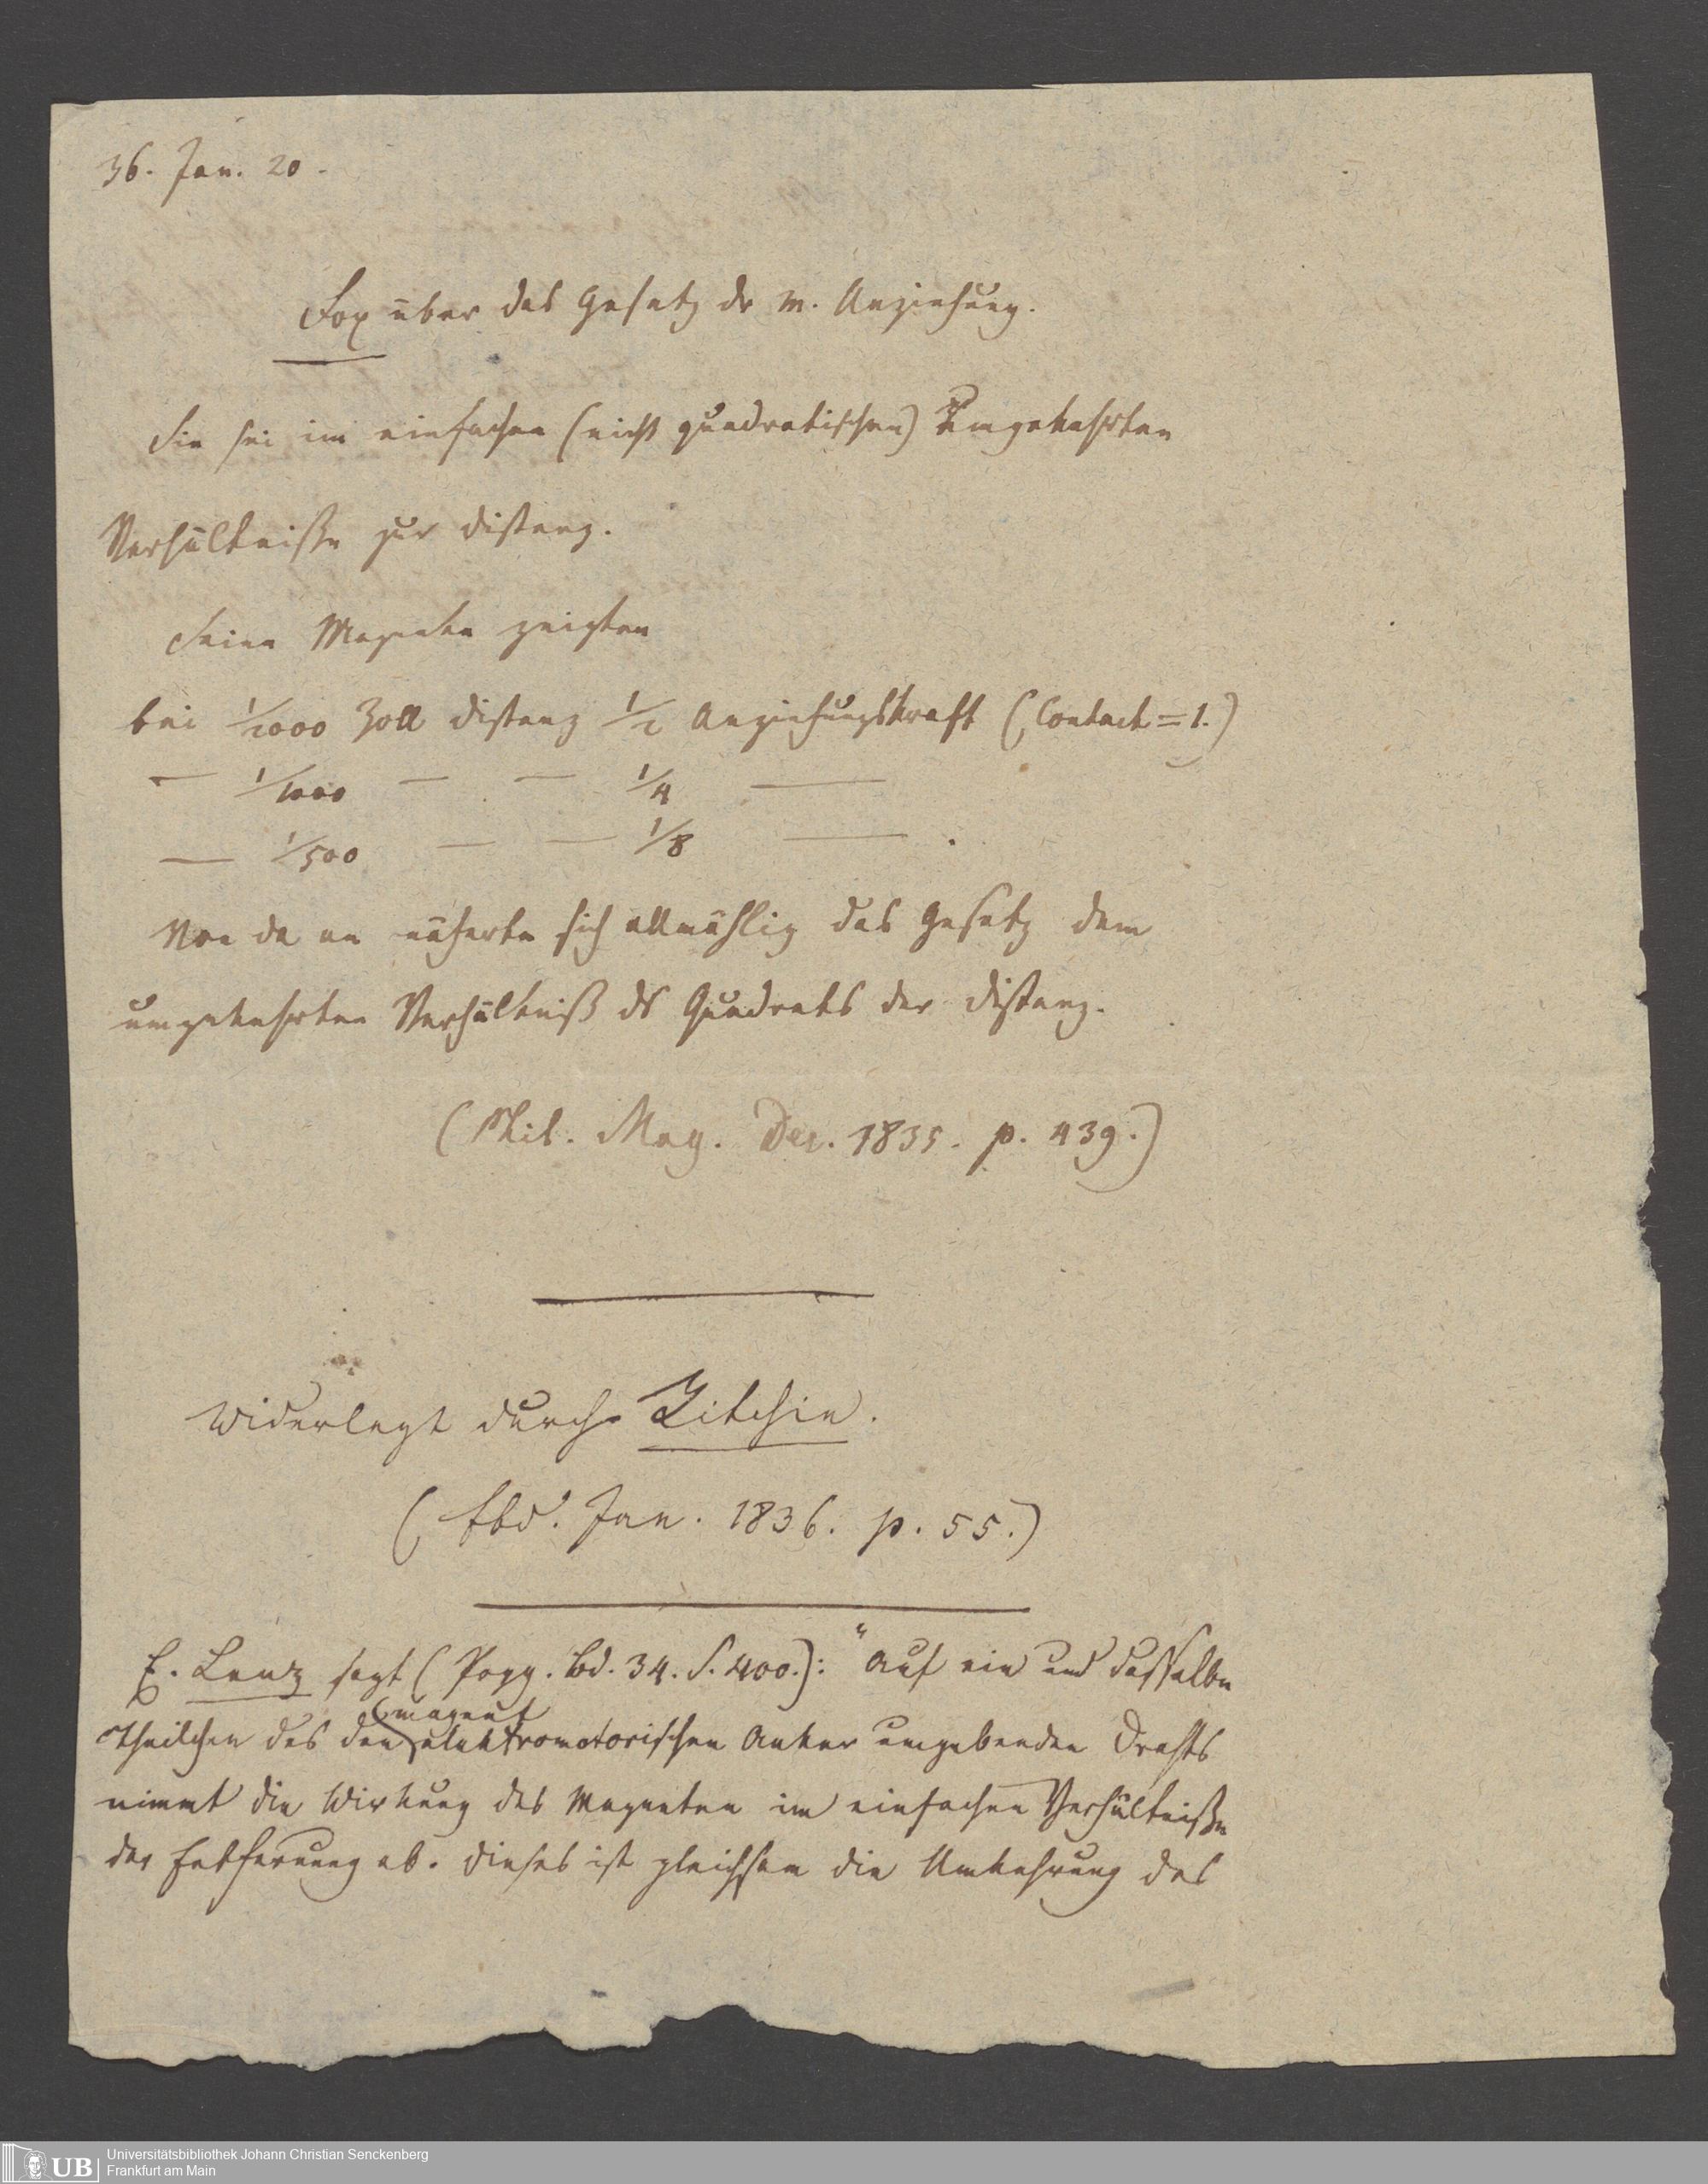 36. Jan. 20.
Fox über das Gesetz dr m. Anziehung.
Sie sei im einfachen (nicht quadratischen) umgekehrten
Verhältnisse zur Distanz.
Seine Magnete zeigten
bei 1/2000 Zoll Distanz 1/2 Anziehungskraft (Contact = 1.)
— 1/1000 — — 1/4 —
— 1/500 — — 1/8 — .
Von da an näherte sich allmählig das Gesetz dem
umgekehrten Verhältniß ds Quadrats der Distanz.
(Phil. Mag. Dec. 1835. p. 439.)
Widerlegt durch Ritchie.
(Ebd. Jan. 1836. p. 55.)
E. Lenz sagt (Pogg. Bd. 34. S. 400.): "Auf ein und dasselbe
magneto
Theilchen des den elektromotorischen Anker umgebenden Drahts
nimmt die Wirkung des Magneten im einfachen Verhältnisse
der Entfernung ab. Dieses ist gleichsam die Umkehrung des
UB
Universitätsbibliothek Johann Christian Senckenberg
Frankfurt am Main